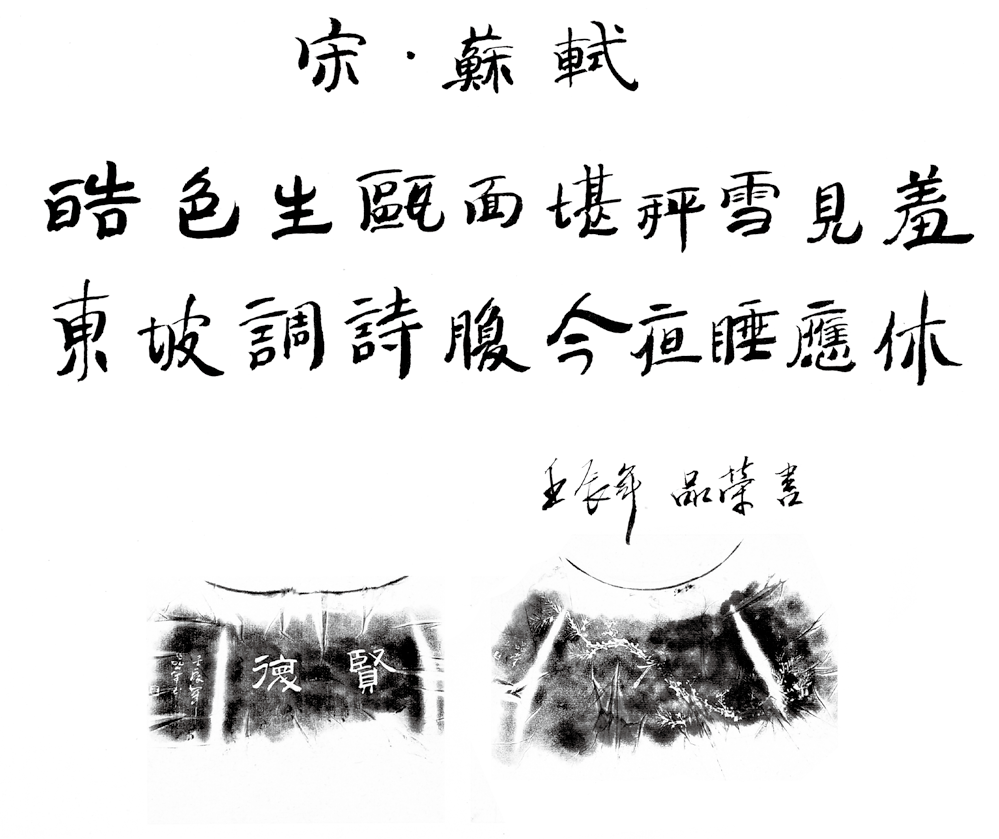 宋·蘇軾
皓色生甌面堪秤雪見羞
東坡調詩腹今夜睡應休
壬辰年 品榮書
賢德
壬辰年